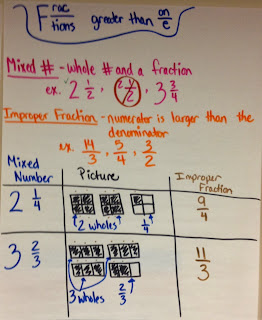 Fractions greater than one
Mixed # - whole # and a fraction
ex. 2 1/2, 2 1/2, 3 3/4
Improper Fraction - numerator is larger than the
denominator
ex. 14/3, 5/4, 3/2
Mixed Number Picture Improper Fraction
2 1/4 9/4
2 wholes 1/4
3 2/3 11/3
3 wholes 2/3